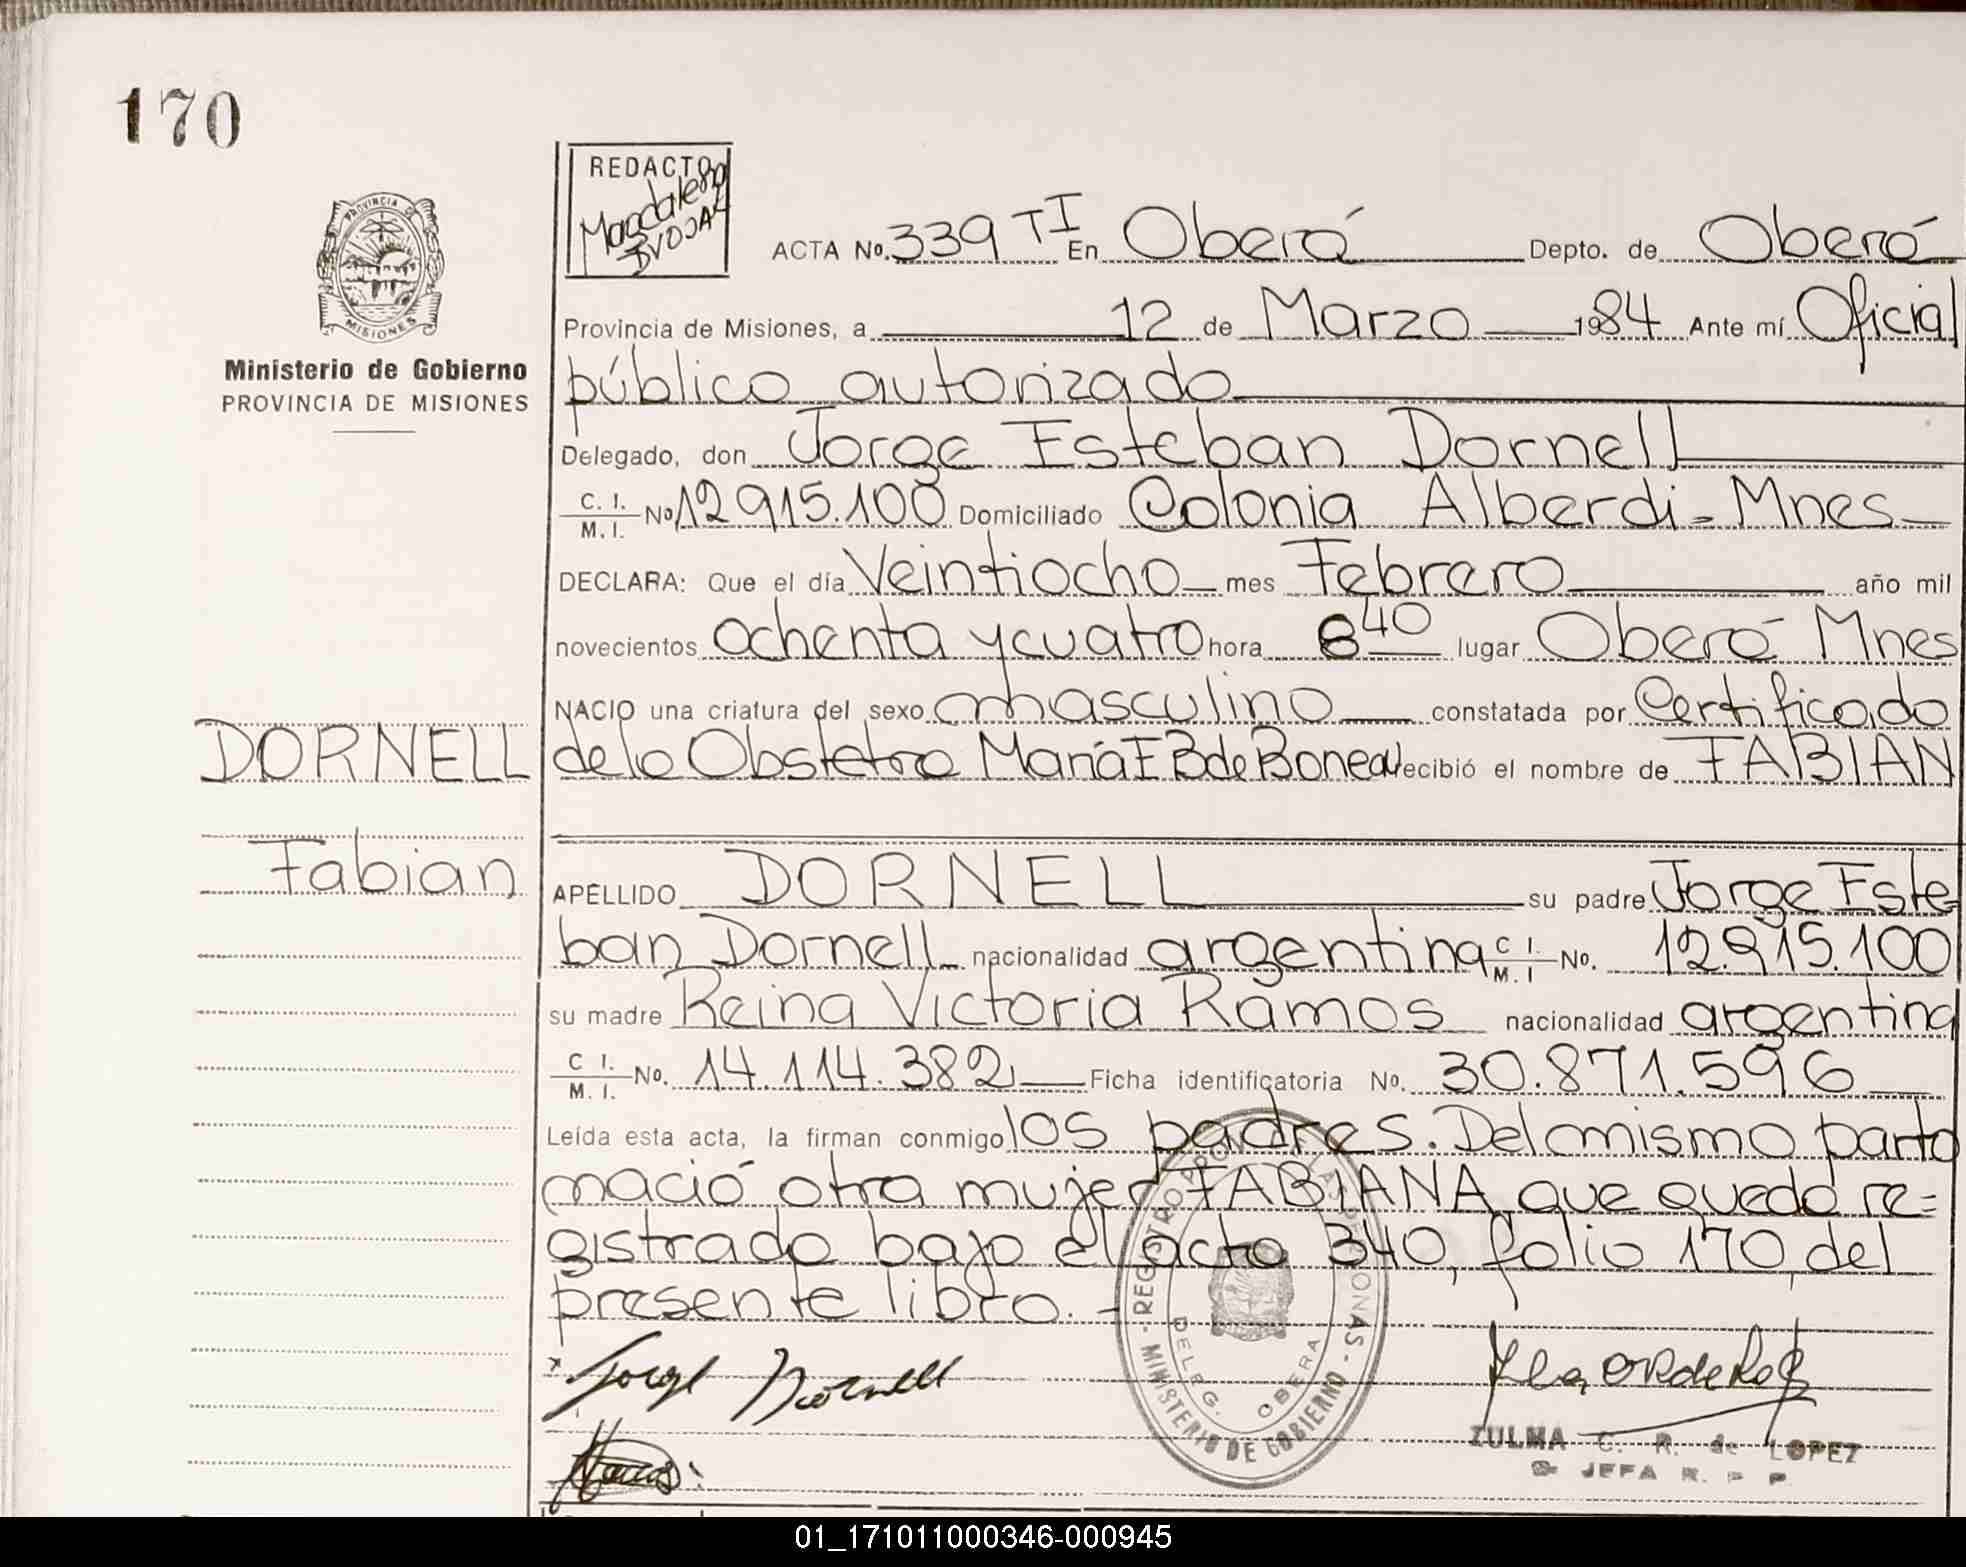 170
REDACTO
Magdalena
ACTA No. 339 TI En Oberá Depto. de Oberá
PROVINCIA DE
MISIONES
Provincia de Misiones, a 12 de Marzo 1984 Ante mí Oficial
Ministerio de Gobierno
PROVINCIA DE MISIONES
público autorizado
Delegado, don Jorge Esteban Dornell
C. I.
M. I. No 12915.100 Domiciliado Colonia Alberdi - Mnes
DECLARA: Que el día Veintiocho mes Febrero año mil
novecientos ochenta y cuatro hora 6 40 lugar Oberá Mnes
NACIO una criatura del sexo masculino constatada por Certificado
DORNELL
de la Obstetra María E B de recibió el nombre de FABIAN
Fabian
APELLIDO DORNELL su padre Jorge Este=
ban Dornell nacionalidad argentina C I. M. I No. 12.915.100
su madre Reina Victoria Ramos nacionalidad argentina
C I. M. I. No. 14.114.382 Ficha identificatoria No. 30.871.596
Leída esta acta, la firman conmigo los padres. Del mismo parto
nació otra mujer FABIANA que queda re=
gistrada bajo el acta 340, folio 170, del
presente libro. -
REGISTRO PROV. DE LAS PERSONAS - MINISTERIO DE GOBIERNO -
DELEG. OBERA
Jorge Dornell
ZULMA C. R. de LOPEZ
JEFA R. P P
01_171011000346-000945